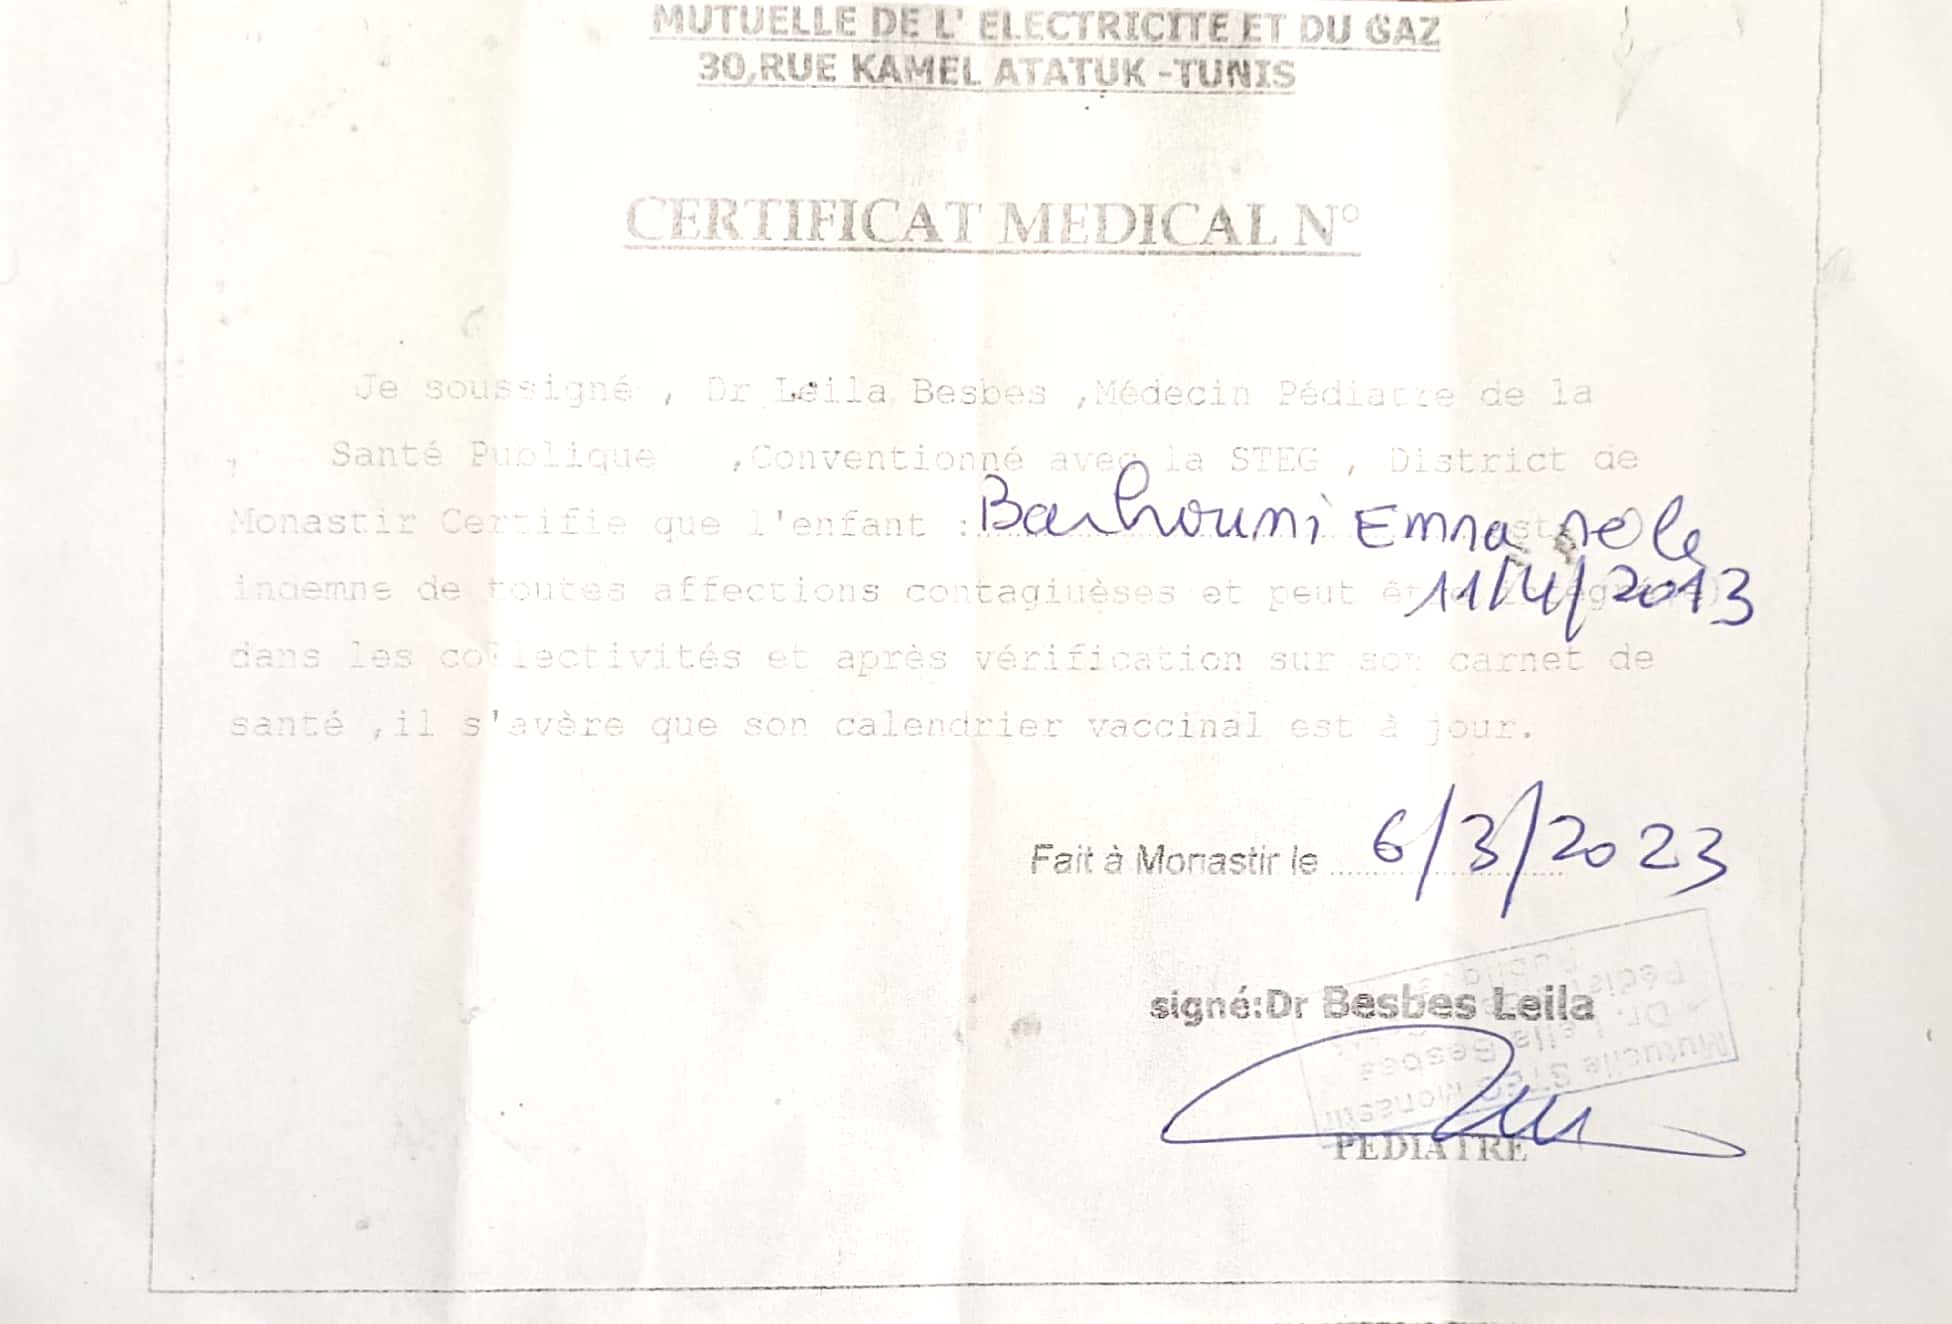 MUTUELLE DE L' ELECTRICITE ET DU GAZ
30,RUE KAMEL ATATUK -TUNIS
CERTIFICAT MEDICAL N°
Je soussigné , Dr Leila Besbes ,Médecin Pédiatre de la
Santé Publique ,Conventionné avec la STEG , District de
Monastir Certifie que l'enfant : Barhoumi Emna née le
11/4/2013
indemne de toutes affections contagiuèses et peut
dans les collectivités et après vérification sur son carnet de
santé ,il s'avère que son calendrier vaccinal est à jour.
Fait à Monastir le 6/3/2023
signé:Dr Besbes Leila
PEDIATRE
Mutuelle STEG Monastir
Dr. Leila Besbes